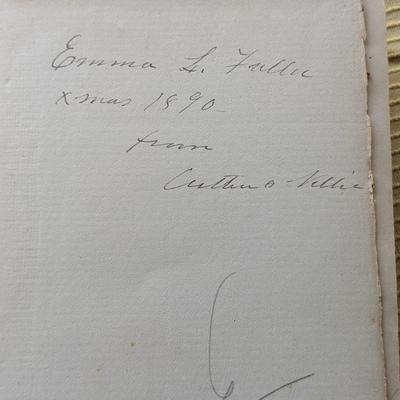 Emma L. Fuller
Xmas 1890
from
Arthur & Nellie